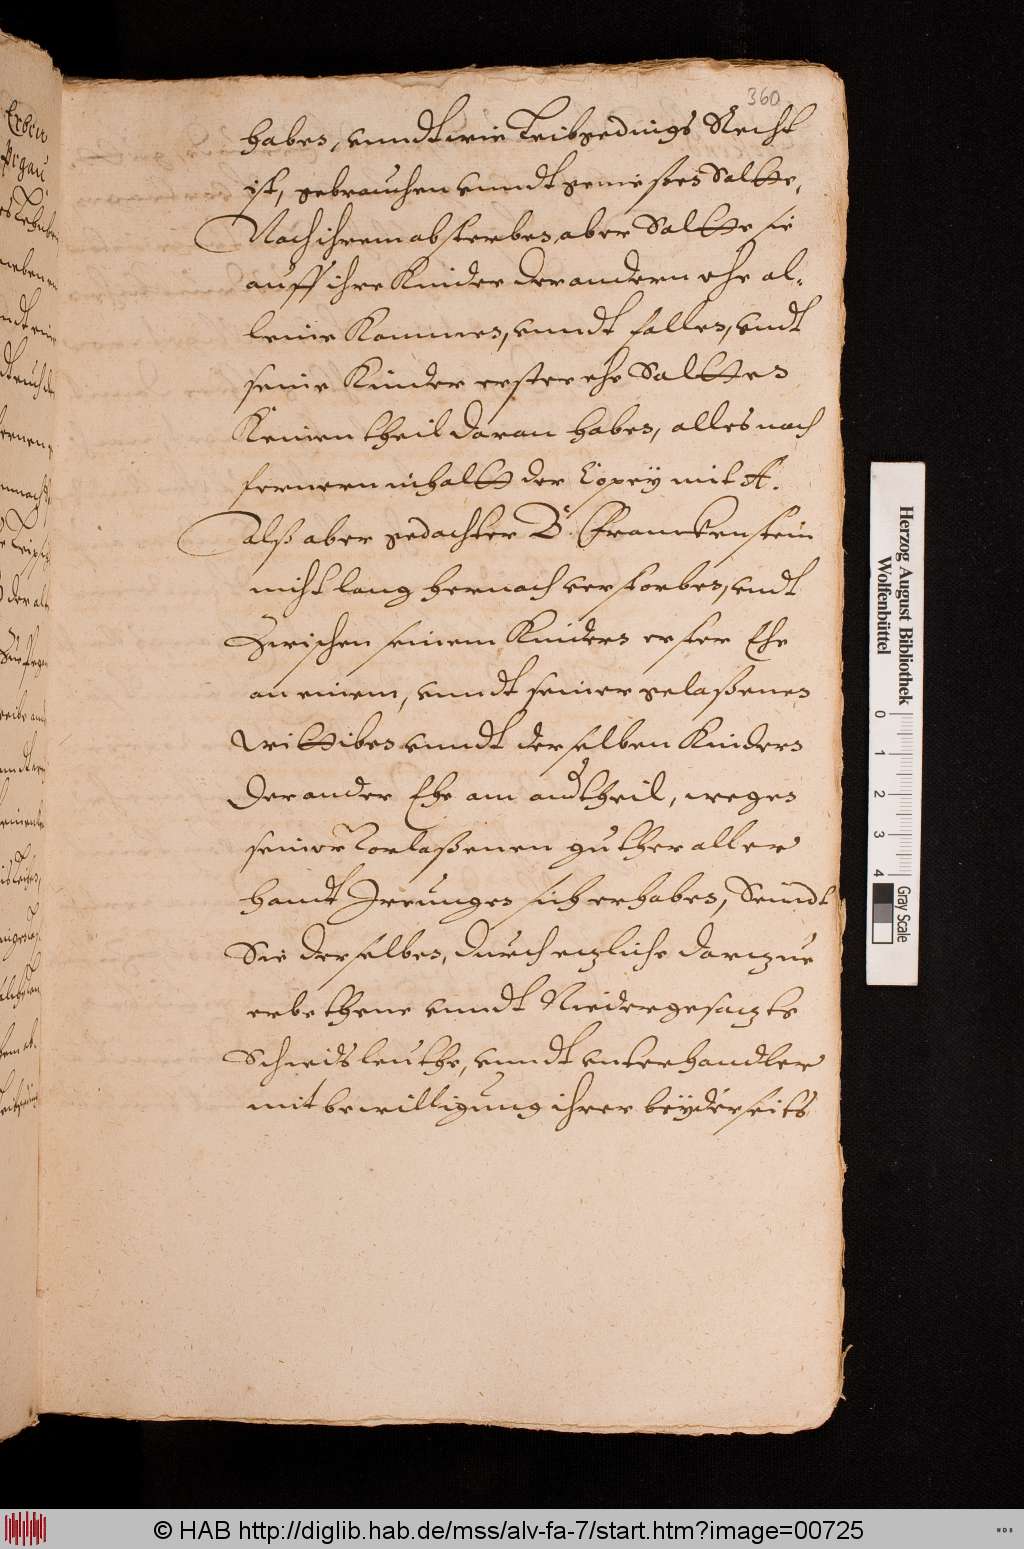 360
haben, vnndt wie Leibgedings Recht
ist, gebrauchen vnndt geniessen Soltte,
Nach ihrem absterben aber Soltte sie
auff ihre Kinder der andern ehe al-
leine Kommen, vnndt fallen, vndt
seine Kinder erster ehe Soltten
Keinen theil daran haben, alles nach
fernern inhaltt der Copey mit A.
Alß aber gedachter D. Franckenstein
nicht lang hernach verstorben, vndt
Zwischen seinem Kindern erster Ehe
an einem, vnndt seiner gelaßenen
Wittiben vnndt derselben Kindern
der ander Ehe am andtheil, wegen
seiner Vorlaßenen guther aller
handt Irrungen sich erhaben, Seindt
Sie derselben, durch etzliche darzue
erbethene vnndt Niedergesatzte
Schiedsleuthe, vnndt vnterhandler
mit bewilligung ihrer beyderseits
Herzog August Bibliothek
Wolfenbüttel
0 1 2 3 4
Gray Scale
© HAB http://diglib.hab.de/mss/alv-fa-7/start.htm?image=00725